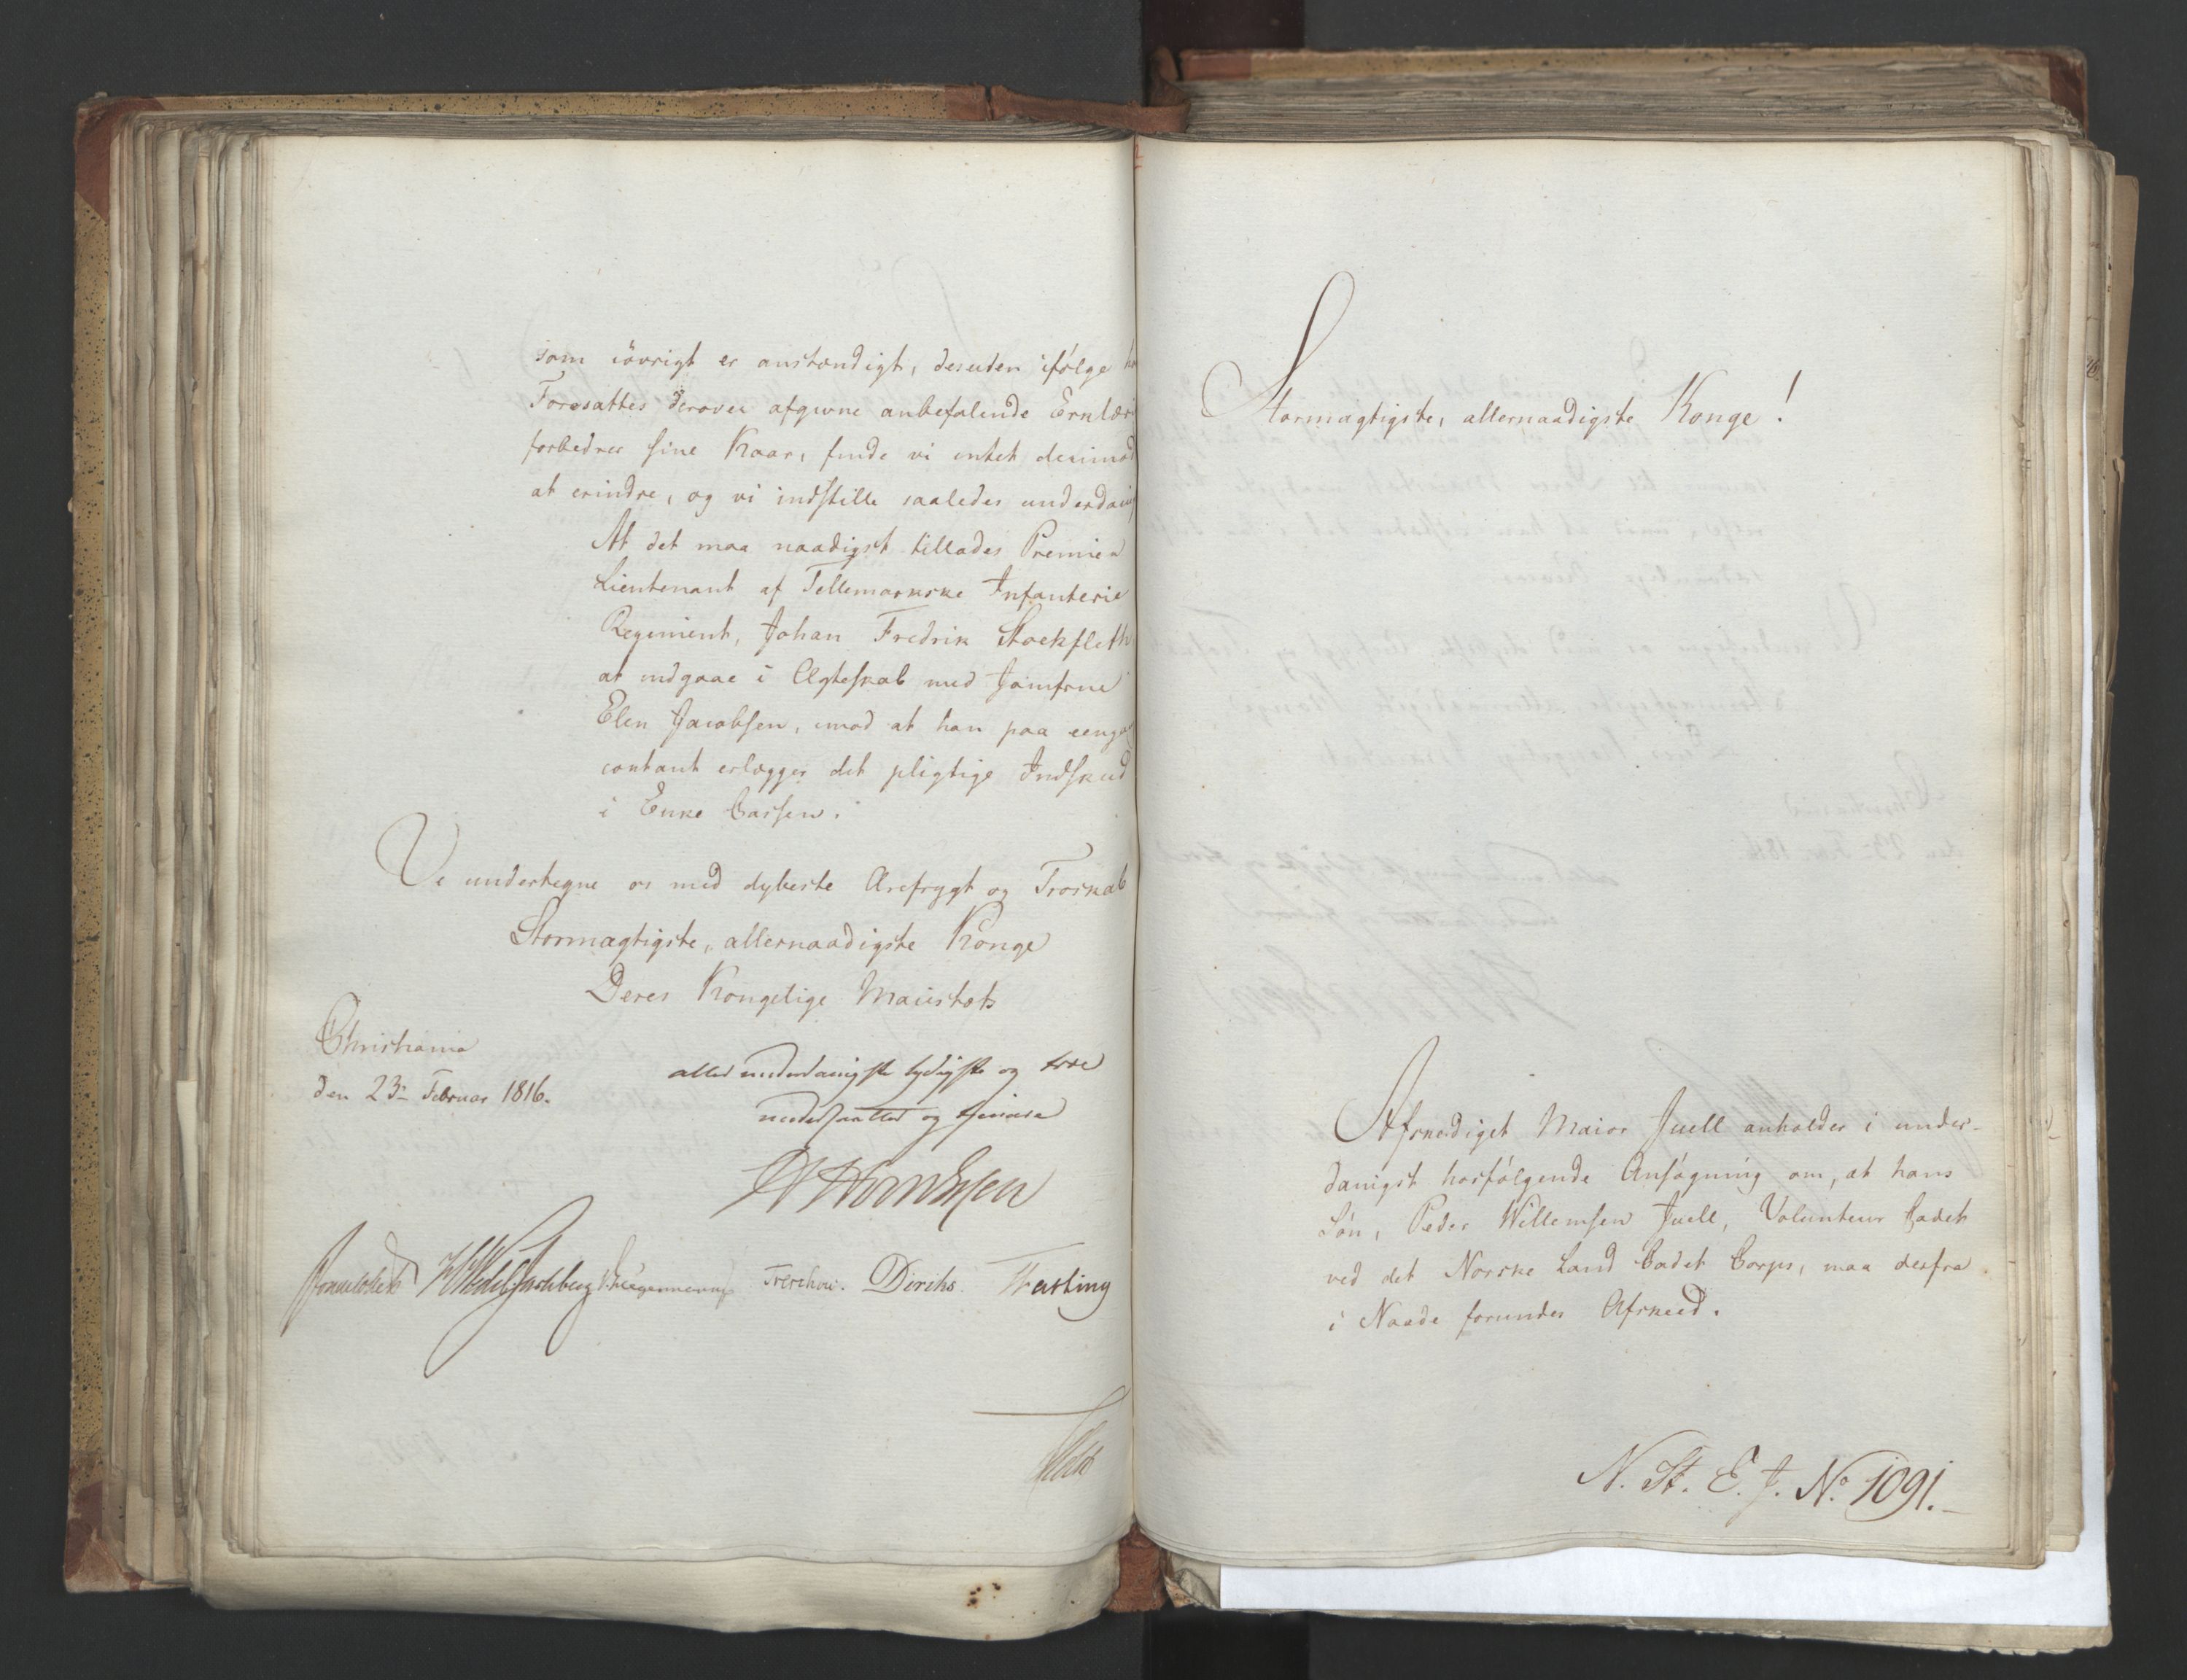 som iøvrigt er anstændigt, desuden ifølge
Foresattes derover afgivne anbefalende Erklæri
forbedrer sine Kaar, finde vi intet derimod
at erindre, og vi indstille saaledes underdanig
At det maa naadigst tillades Premier
Lieutenant af Tellemarkske Infanterie
Regiment, Johan Fredrik Stockfleth
at indgaae i Ægteskab med Jomfrue
Elen Jacobsen, imod at han paa eengang
contant erlægger det pligtige Indskud
i Enke Cassen.
Vi undertegne os med dybeste Ærefrygt og Troskab
Stormægtigste, allernaadigste Konge
Deres Kongelige Maiestæts
Christiania
den 23de Februar 1816.
allerunderdanigste lydigste og troe
undersaatter og tienere
Sommerhielm HWedel Jarlsberg Treschow. Diriks. Fasting
Holst
Stormægtigste, allernaadigste Konge!
Afskediget Maior Juell anholder i under-
danigst hosfølgende Ansøgning om, at hans
Søn, Peder Willemsen Juell, Volunteur Cadet
ved det Norske Land Cadet Corps, maa derfra
i Naade forundes Afskeed.
N. St. E. J. No 1091.